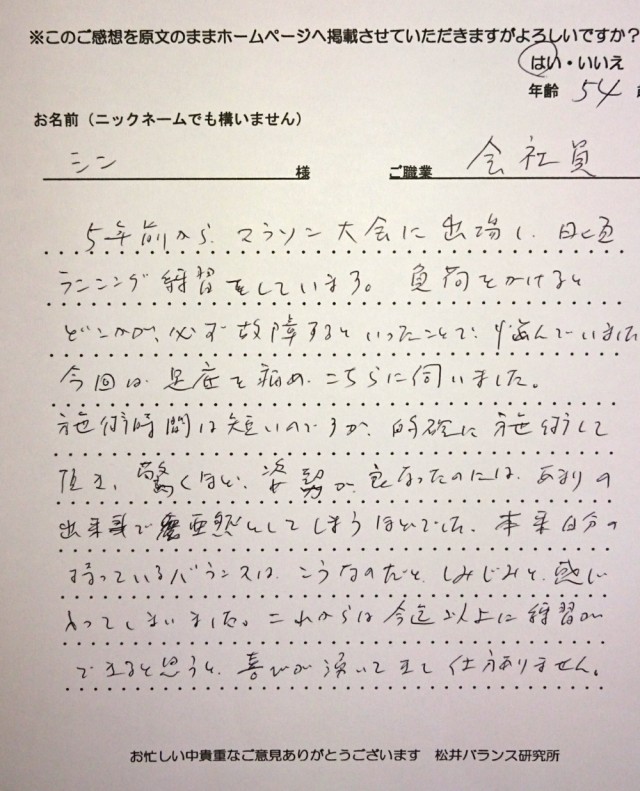 ※このご感想を原文のままホームページへ掲載させていただきますがよろしいですか?
はい・いいえ
年齢 54
お名前(ニックネームでも構いません)
シン 様 ご職業 会社員
5年前から、マラソン大会に出場し、日頃
ランニング練習をしています。負荷をかけると
どこかが、必ず故障するといったことで、悩んでいました
今回は、足底を痛め、こちらに伺いました。
施術時間は短いのですが、的確に施術して
頂き、驚くほど、姿勢が良なったのには、あまりの
出来事で唖然としてしまうほどでした。本来自分の
持っているバランスは、こうなのだと、しみじみと、感じ
入ってしまいました。これからは今迄以上に練習が
できると思うと、喜びが湧いてきて仕方ありません。
お忙しい中貴重なご意見ありがとうございます 松井バランス研究所